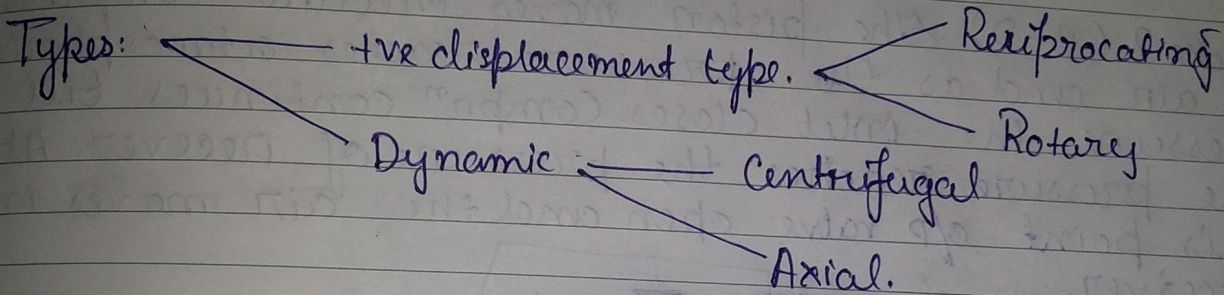 Types: +ve displacement type. Reciprocating
Rotary
Dynamic Centrifugal
Axial.